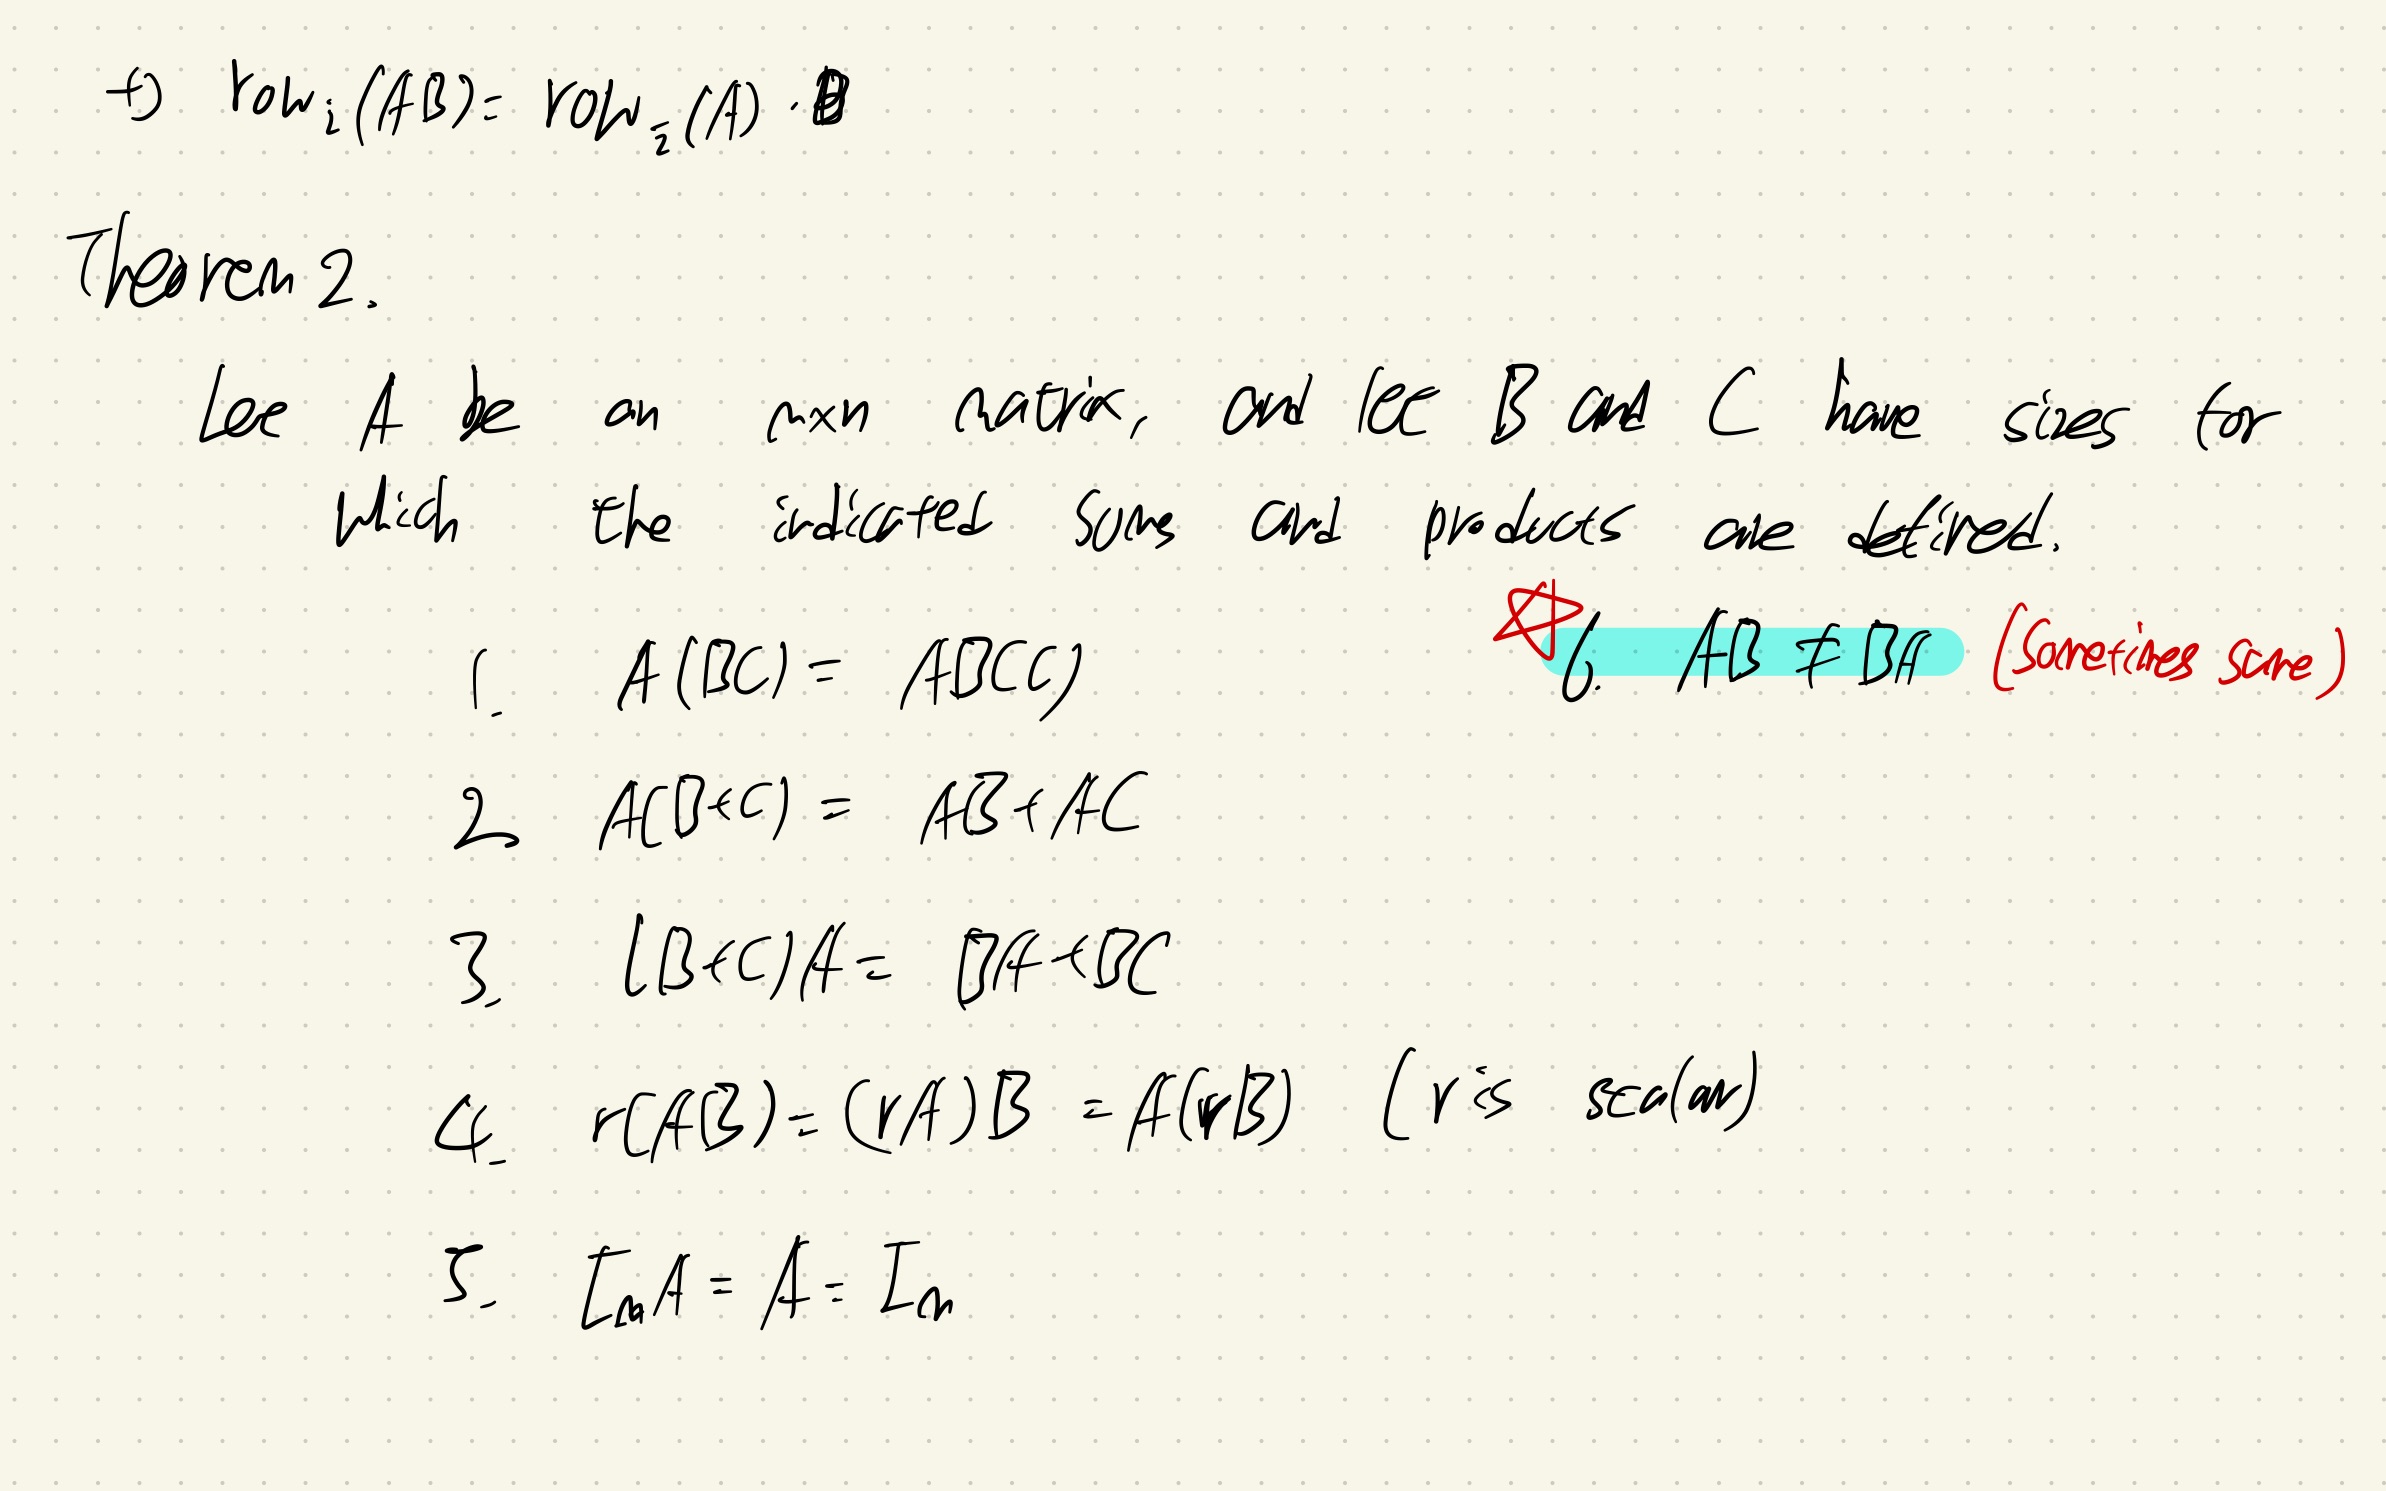 → row_i(AB) = row_i(A) · B
Theorem 2.
Let A be an m×n matrix, and let B and C have sizes for
which the indicated sums and products are defined.
1. A(BC) = AB(C)
6. AB ≠ BA (Sometimes same)
2. A(B+C) = AB+AC
3. (B+C)A = BA+BC
4. r(AB) = (rA)B = A(rB) (r is scalar)
5. I_m A = A = I_n